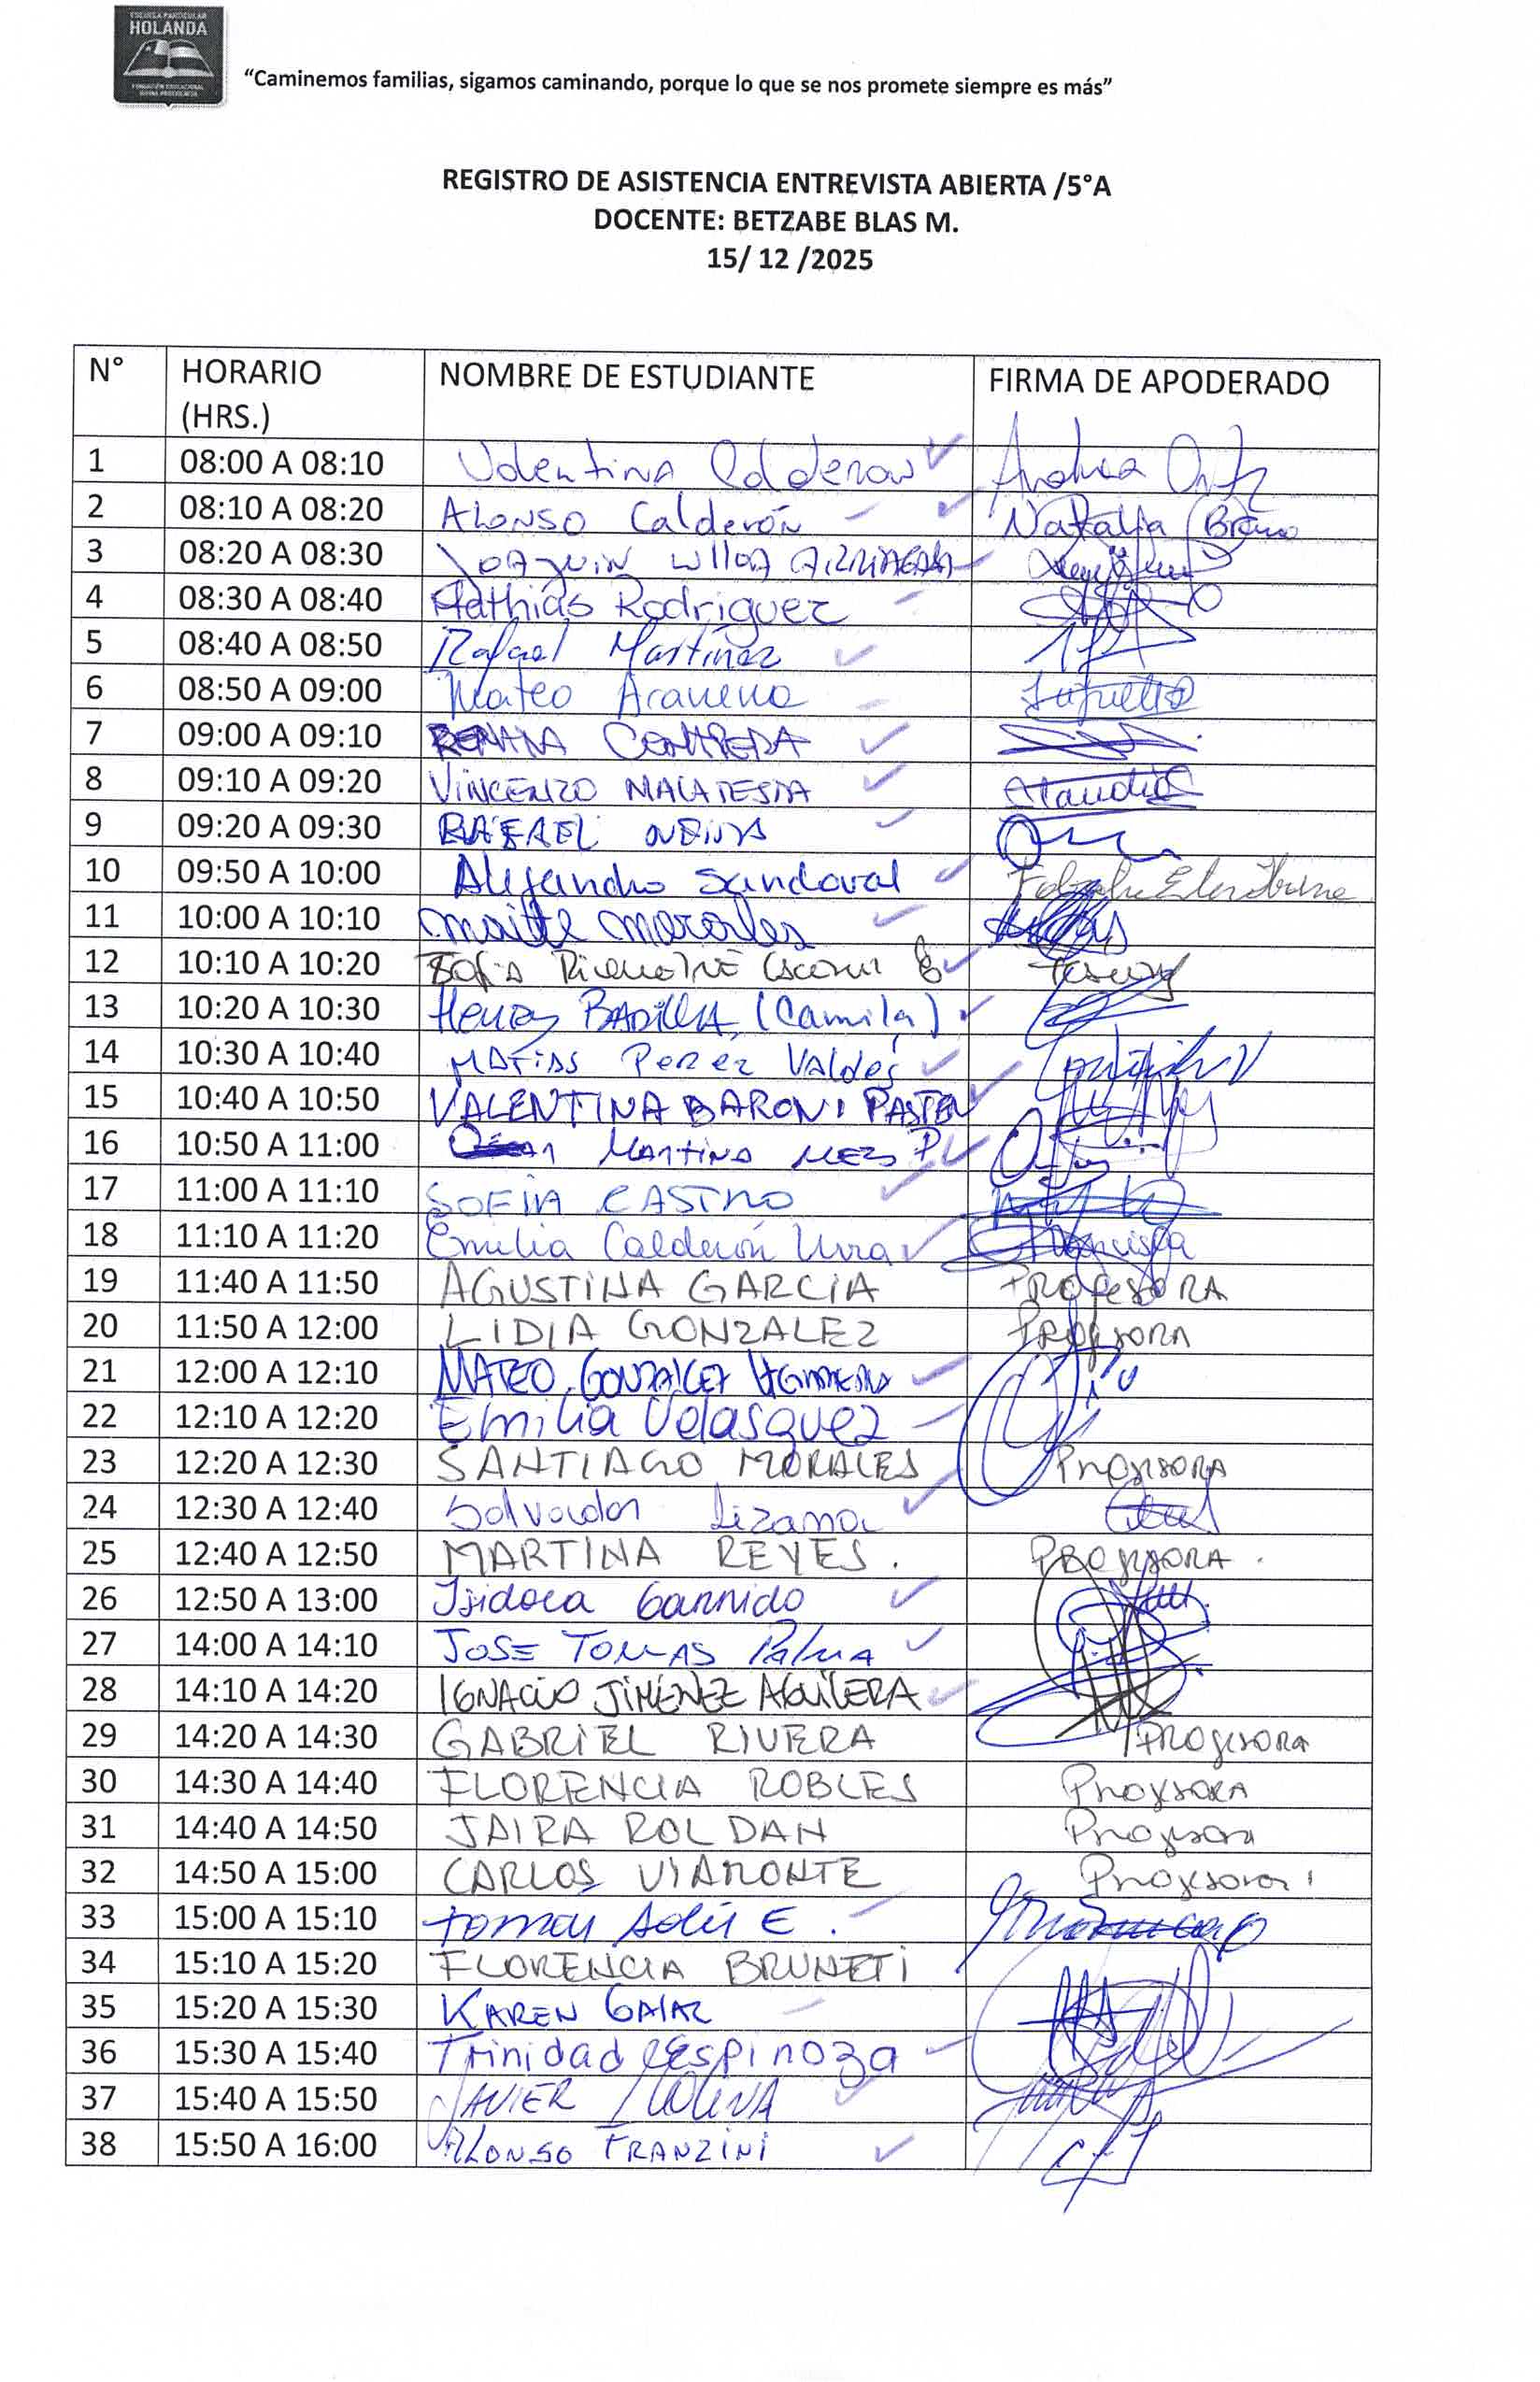 ESCUELA PARTICULAR
HOLANDA
FUNDACIÓN EDUCACIONAL
"Caminemos familias, sigamos caminando, porque lo que se nos promete siempre es más"
REGISTRO DE ASISTENCIA ENTREVISTA ABIERTA /5°A
DOCENTE: BETZABE BLAS M.
15/ 12 /2025
N° HORARIO (HRS.) NOMBRE DE ESTUDIANTE FIRMA DE APODERADO
1 08:00 A 08:10 Valentina Calderon Andrea Ortiz
2 08:10 A 08:20 Alonso Calderón Natalia Bravo
3 08:20 A 08:30 JOAQUIN
4 08:30 A 08:40 Mathias Rodriguez
5 08:40 A 08:50 Rafael Martínez
6 08:50 A 09:00 Mateo Aravena
7 09:00 A 09:10
8 09:10 A 09:20 VINCENZO MALATESTA Claudia
9 09:20 A 09:30 RAFAEL
10 09:50 A 10:00 Alejandro Sandoval
11 10:00 A 10:10 maitte morales
12 10:10 A 10:20 Sofia
13 10:20 A 10:30 Henry BADILLA (Camila)
14 10:30 A 10:40 MATIAS Perez Valdés
15 10:40 A 10:50 VALENTINA BARONI PASTEN
16 10:50 A 11:00 Martina
17 11:00 A 11:10 SOFIA CASTRO
18 11:10 A 11:20 Emilia Calderón Urra Francisca
19 11:40 A 11:50 AGUSTINA GARCIA PROFESORA
20 11:50 A 12:00 LIDIA GONZALEZ PROFESORA
21 12:00 A 12:10 MATEO GONZALEZ
22 12:10 A 12:20 Emilia Velasquez
23 12:20 A 12:30 SANTIAGO MORALES PROFESORA
24 12:30 A 12:40 Salvador Lizana
25 12:40 A 12:50 MARTINA REYES. PROFESORA.
26 12:50 A 13:00 Isidora Garrido
27 14:00 A 14:10 JOSE TOMAS Palma
28 14:10 A 14:20 IGNACIO JIMÉNEZ AGUILERA
29 14:20 A 14:30 GABRIEL RIVERA PROFESORA
30 14:30 A 14:40 FLORENCIA ROBLES PROFESORA
31 14:40 A 14:50 JAIRA ROLDAN Profesora
32 14:50 A 15:00 CARLOS VIAMONTE Profesora
33 15:00 A 15:10 Tomas
34 15:10 A 15:20 FLORENCIA BRUNETI
35 15:20 A 15:30 KAREN
36 15:30 A 15:40 Trinidad Espinoza
37 15:40 A 15:50 JAVIER MOLINA
38 15:50 A 16:00 ALONSO FRANZINI